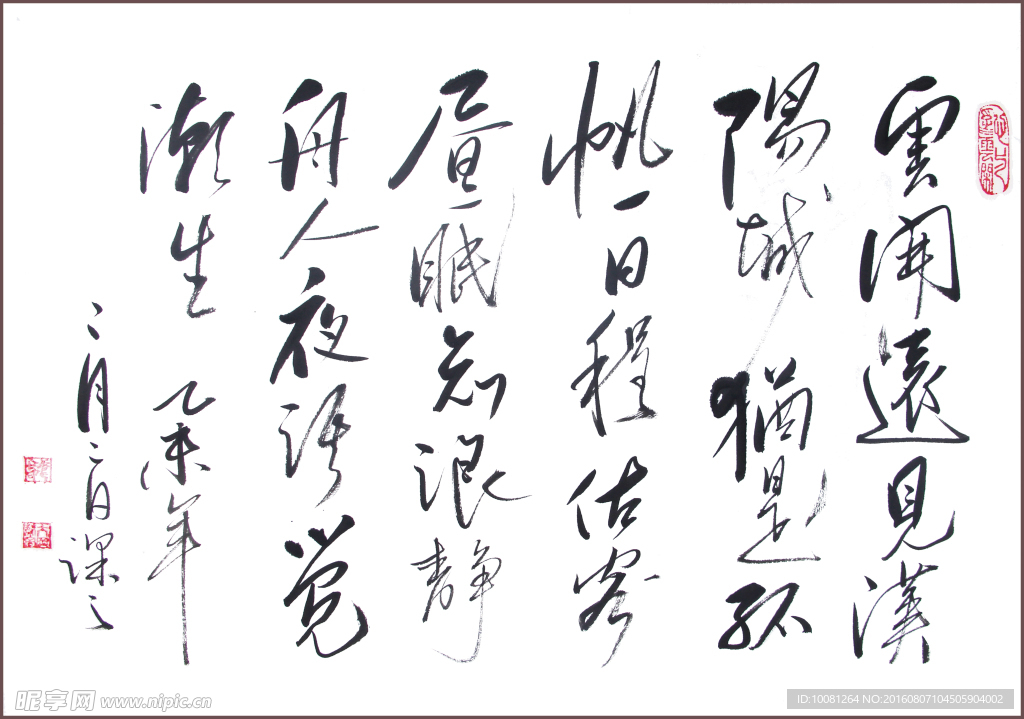 雲開遠見漢
陽城猶是孤
帆一日程估客
晝眠知浪靜
舟人夜語覺
潮生 乙未年
二月二日課之
昵享网 www.nipic.cn
ID:10081264 NO:20160807104505904002